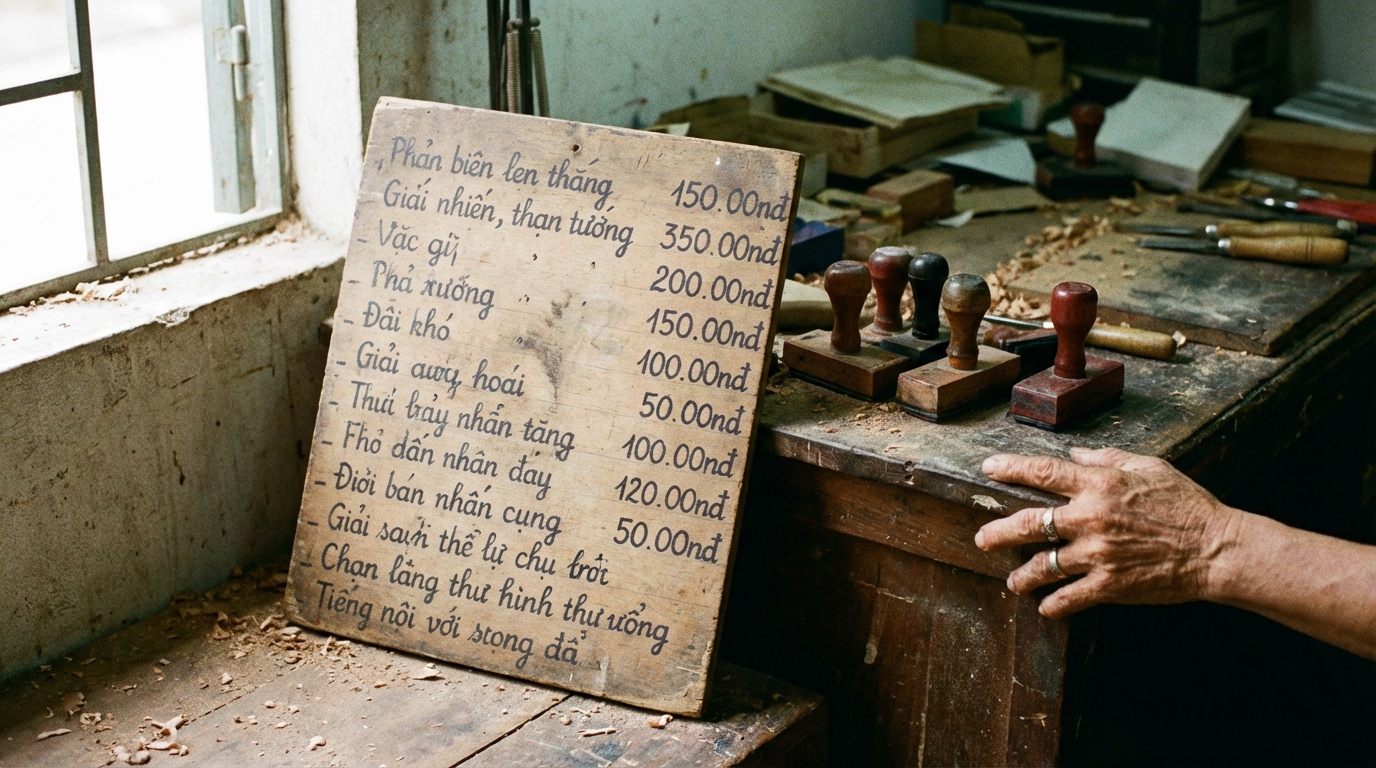 - Phản biên len thắng 150.00nđ
Giải nhiến, thạn tướng 350.00nđ
- Vặc gij 200.00nđ
- Phả xưống 150.00nđ
- Đãi khó 100.00nđ
- Giải hoái 50.00nđ
- Thưi bảy nhẫn tặng 100.00nđ
- Fhỏ dấn nhân đay 120.00nđ
- Điời bán nhấn cụng 50.00nđ
- Giải thể lự chụ
- Chạn lẳng thư hình thư uổng
- Tiếng nội với đẩ